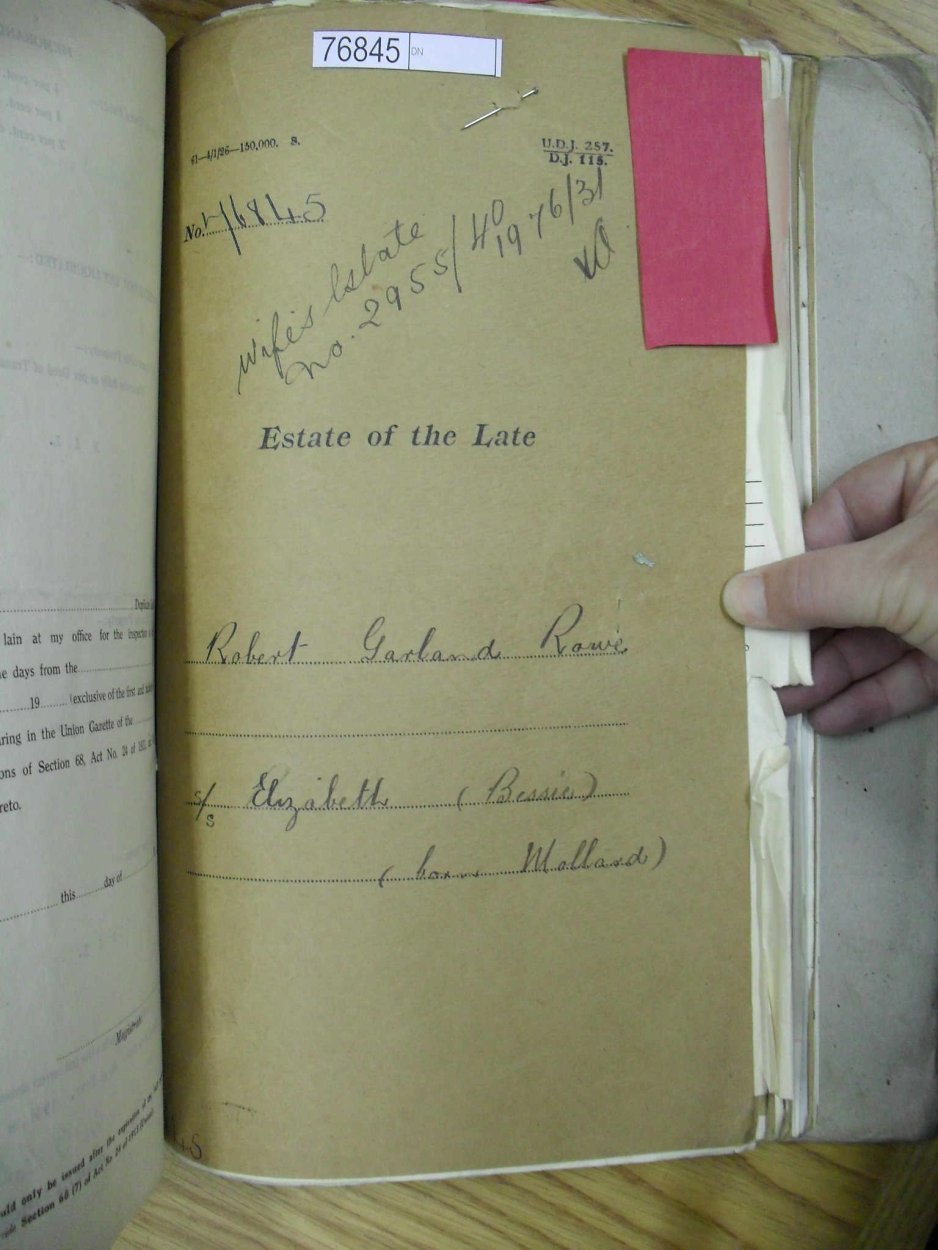 76845 DN
61—4/1/26—150,000. S.
U.D.J. 257.
D.J. 115.
No. 76845
Wife's Estate
No. 2955/40
1976/31
Estate of the Late
Robert Garland Rowe
s/s Elizabeth (Bessie)
(born Mollard)
45
lain at my office for the
e days from the
19 (exclusive of the first and
ring in the Union Gazette of the
ons of Section 68, Act No. 24 of
reto.
this day of
Magistrate
uld only be issued after the expiration of the
Section 68 (7) of Act No. 24 of 1913